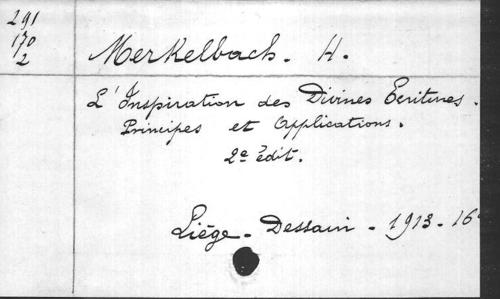 291
170
2
Merkelbach. H.
L'Inspiration des Divines Ecritures.
Principes et Applications.
2e édit.
Liége. Dessain - 1913 - 16°